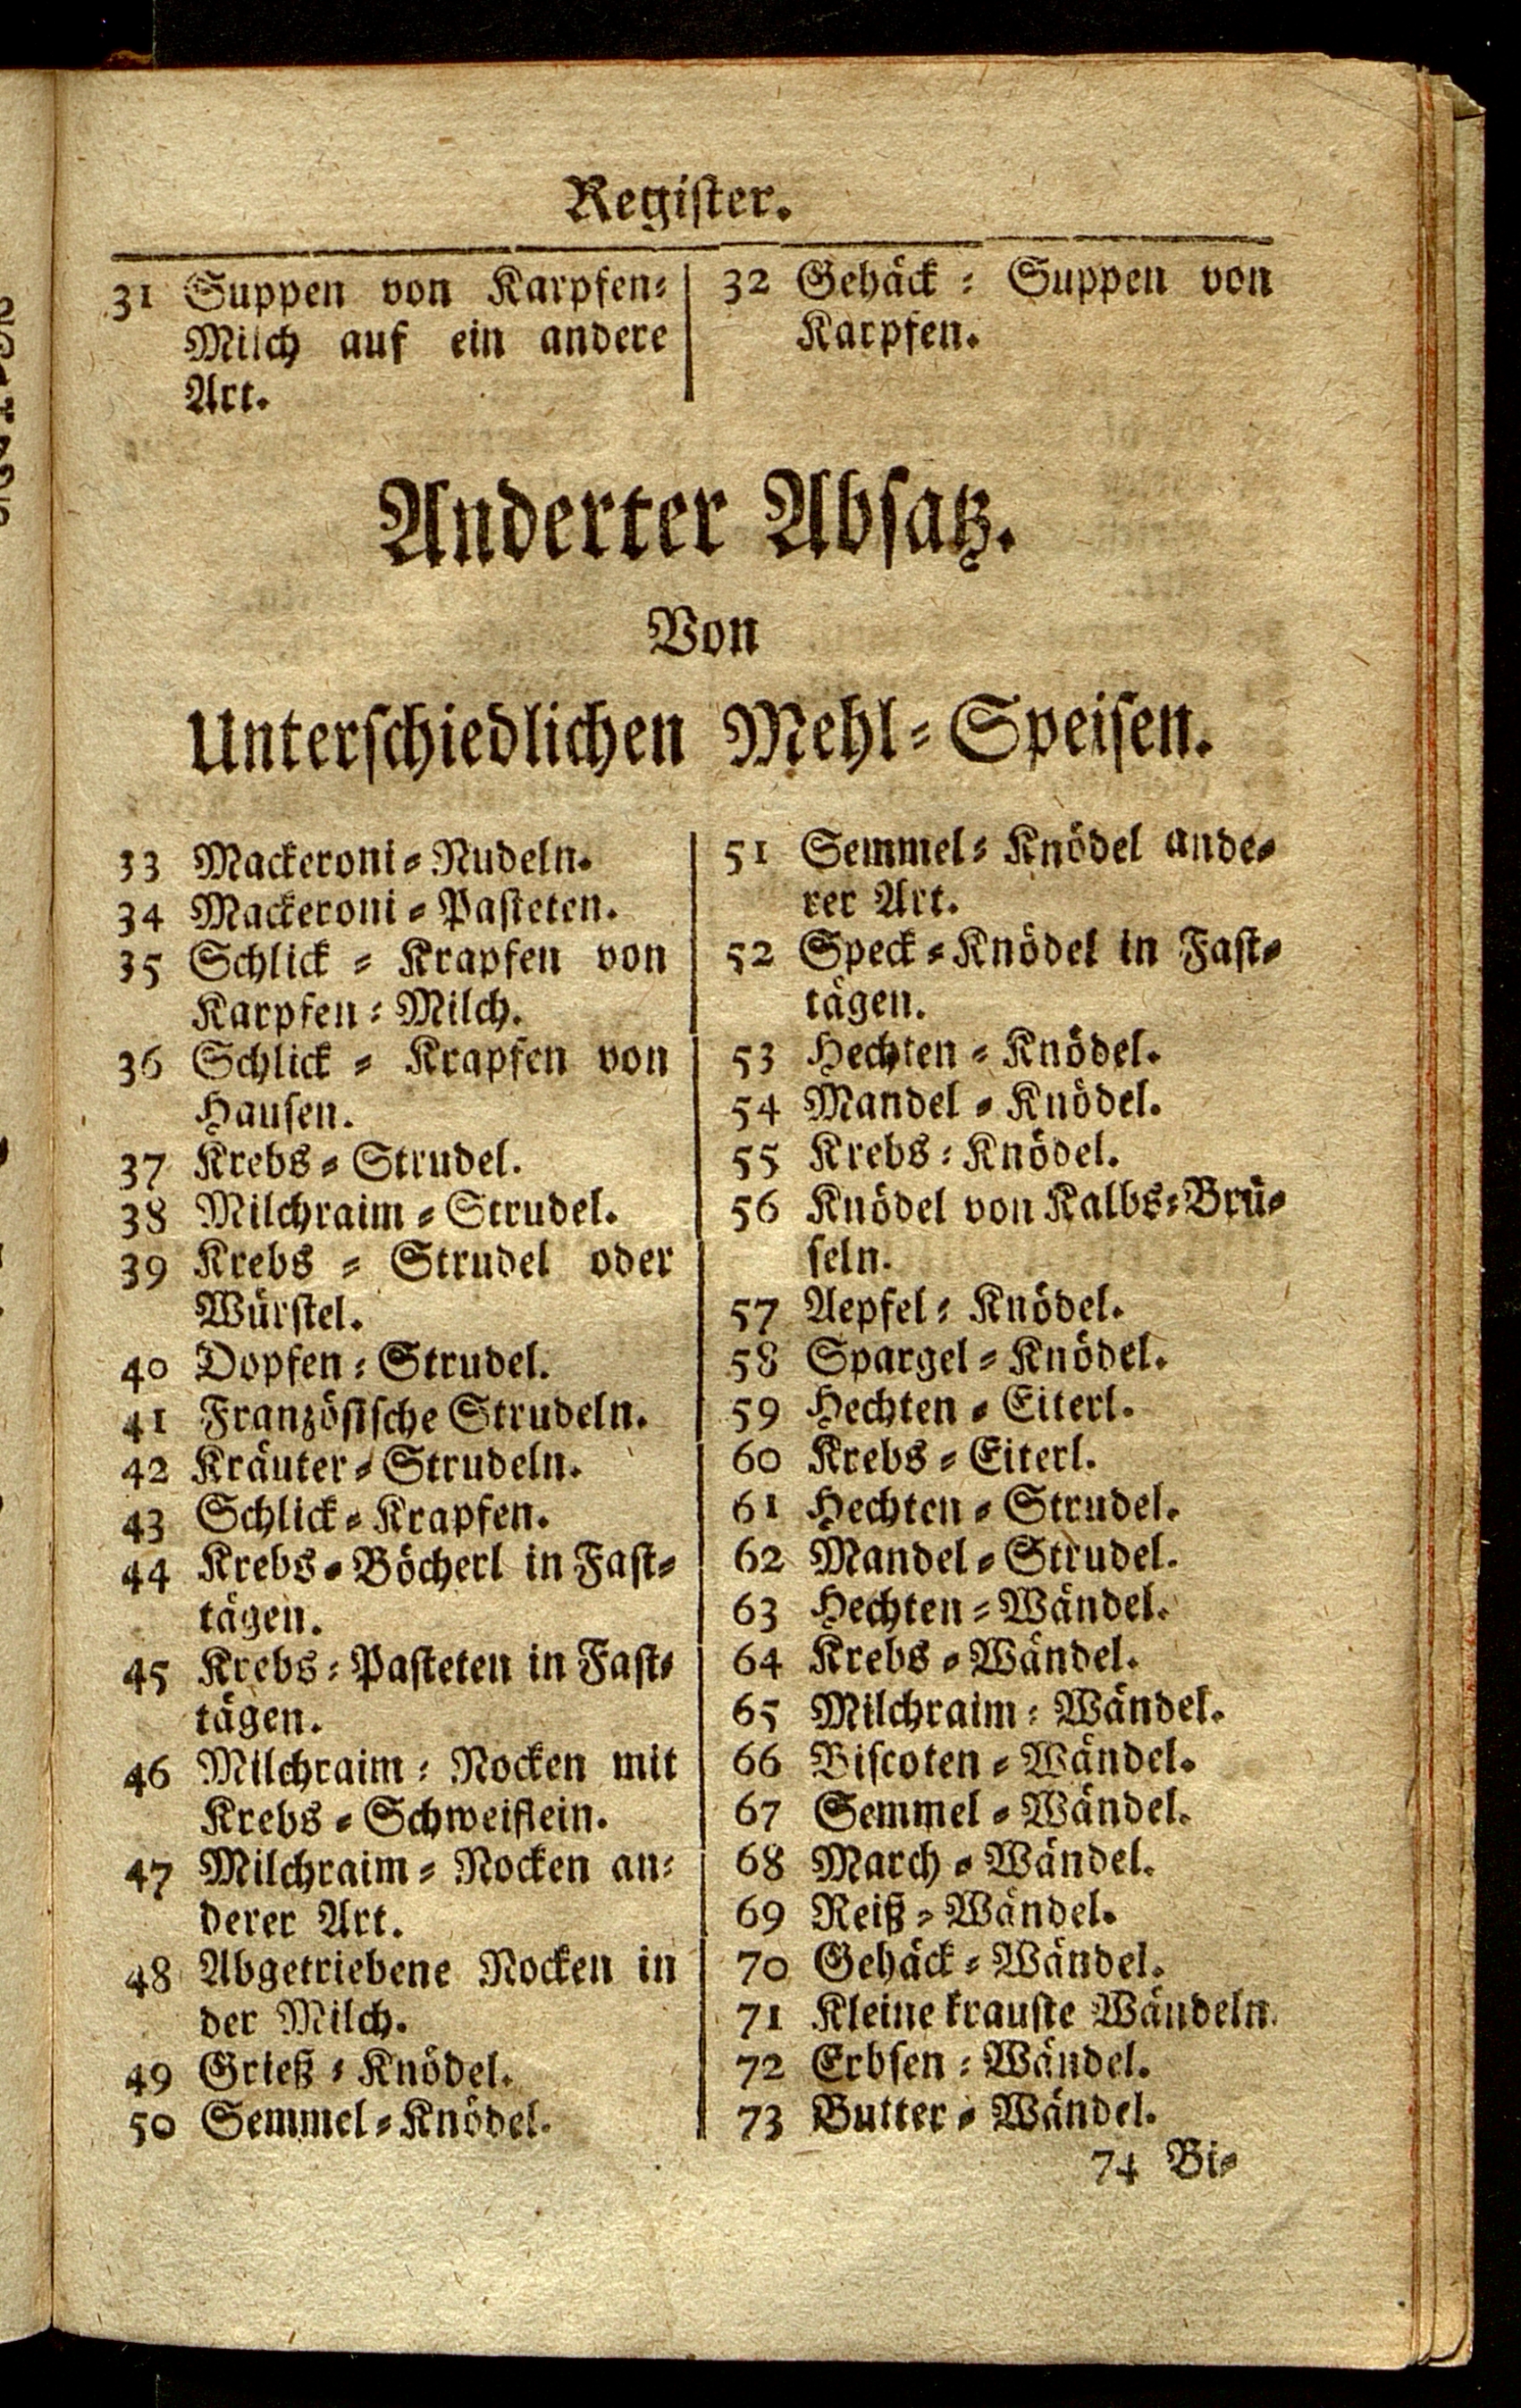 Register.
31 Suppen von Karpfen-
Milch auf ein andere
Art.
32 Gehäck - Suppen von
Karpfen.
Anderter Absatz.
Von
Unterschiedlichen Mehl-Speisen.
33 Mackeroni-Nudeln.
34 Mackeroni-Pasteten.
35 Schlick - Krapfen von
Karpfen-Milch.
36 Schlick - Krapfen von
Hausen.
37 Krebs-Strudel.
38 Milchraim-Strudel.
39 Krebs - Strudel oder
Würstel.
40 Dopfen-Strudel.
41 Französische Strudeln.
42 Kräuter-Strudeln.
43 Schlick-Krapfen.
44 Krebs-Böcherl in Fast-
tägen.
45 Krebs-Pasteten in Fast-
tägen.
46 Milchraim-Nocken mit
Krebs-Schweiflein.
47 Milchraim-Nocken an-
derer Art.
48 Abgetriebene Nocken in
der Milch.
49 Grieß-Knödel.
50 Semmel-Knödel.
51 Semmel-Knödel ande-
rer Art.
52 Speck-Knödel in Fast-
tägen.
53 Hechten-Knödel.
54 Mandel-Knödel.
55 Krebs-Knödel.
56 Knödel von Kalbs-Brü-
seln.
57 Aepfel-Knödel.
58 Spargel-Knödel.
59 Hechten-Eiterl.
60 Krebs-Eiterl.
61 Hechten-Strudel.
62 Mandel-Strudel.
63 Hechten-Wändel.
64 Krebs-Wändel.
65 Milchraim-Wändel.
66 Biscoten-Wändel.
67 Semmel-Wändel.
68 March-Wändel.
69 Reiß-Wändel.
70 Gehäck-Wändel.
71 Kleine krauste Wändeln.
72 Erbsen-Wändel.
73 Butter-Wändel.
74 Bi-